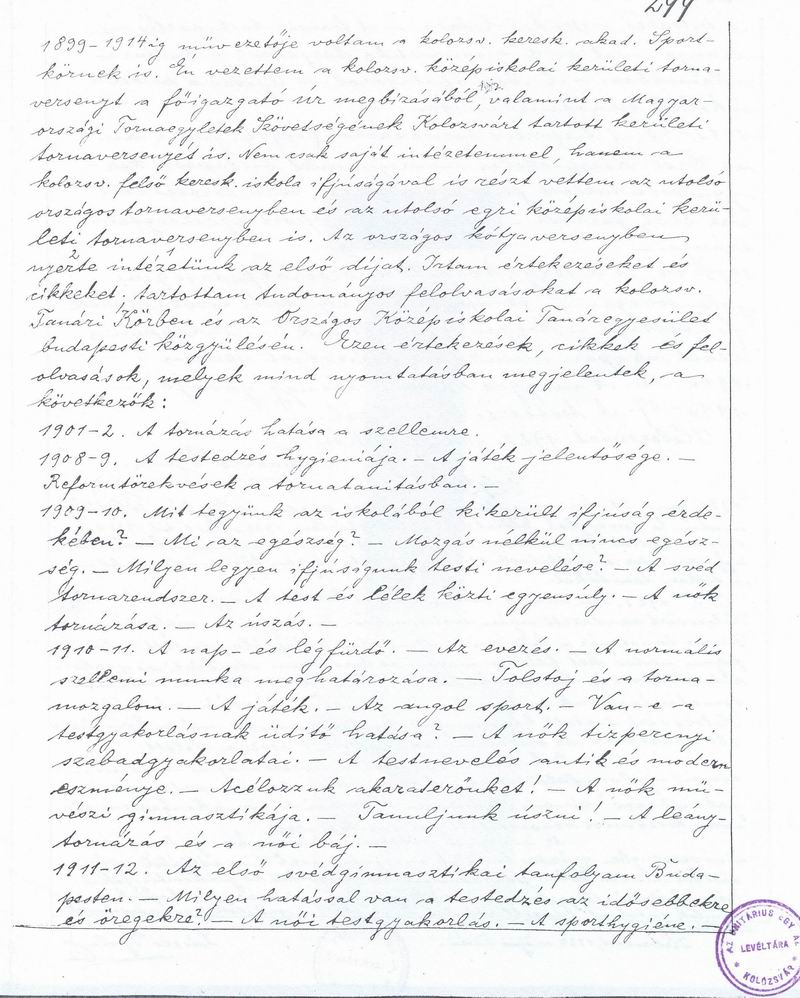 299
1899-1914ig művezetője voltam a kolozsv. keresk. akad. Sport-
körnek is. Én vezettem a kolozsv. középiskolai kerületi torna-
versenyt a főigazgató úr megbizásából, valamint a Magyar-
országi Tornaegyletek Szövetségének Kolozsvárt tartott kerületi
tornaversenyét is. Nem csak saját intézetemmel, hanem a
kolozsv. felső keresk. iskola ifjúságával is részt vettem az utolsó
országos tornaversenyben és az utolsó egri középiskolai kerü-
leti tornaversenyben is. Az országos kótyaversenyben
nyerte intézetünk az első díjat. Irtam értekezéseket és
cikkeket. tartottam tudományos felolvasásokat a kolozsv.
Tanári Körben és az Országos Középiskolai Tanáregyesület
budapesti közgyülésén. Ezen értekezések, cikkek és fel-
olvasások, melyek mind nyomtatásban megjelentek, a
következők:
1901-2. A tornázás hatása a szellemre.
1908-9. A testedzés hygieniája. - A játék jelentősége. -
Reformtörekvések a tornatanitásban. -
1909-10. Mit tegyünk az iskolából kikerült ifjúság érde-
kében? - Mi az egészség? - Mozgás nélkül nincs egész-
ség. - Milyen legyen ifjúságunk testi nevelése? - A svéd
tornarendszer. - A test és lélek közti egyensúly. - A nők
tornázása. - Az úszás. -
1910-11. A nap- és légfürdő. - Az evezés. - A normális
szellemi munka meghatározása. - Tolstoj és a torna-
mozgalom. - A játék. - Az angol sport. - Van-e a
testgyakorlásnak üdítő hatása? - A nők tizpercnyi
szabadgyakorlatai. - A testnevelés antik és modern
eszménye. - Acélozzuk akaraterőnket! - A nők mü-
vészi gimnasztikája. - Tanuljunk úszni! - A leány-
tornázás és a női báj. -
1911-12. Az első svédgimnasztikai tanfolyam Buda-
pesten. - Milyen hatással van a testedzés az idősebbekre
és öregekre? - A női testgyakorlás. - A sporthygiéne. -
AZ UNITÁRIUS EGY. ÁL
LEVÉLTÁRA
* KOLOZSVÁR *